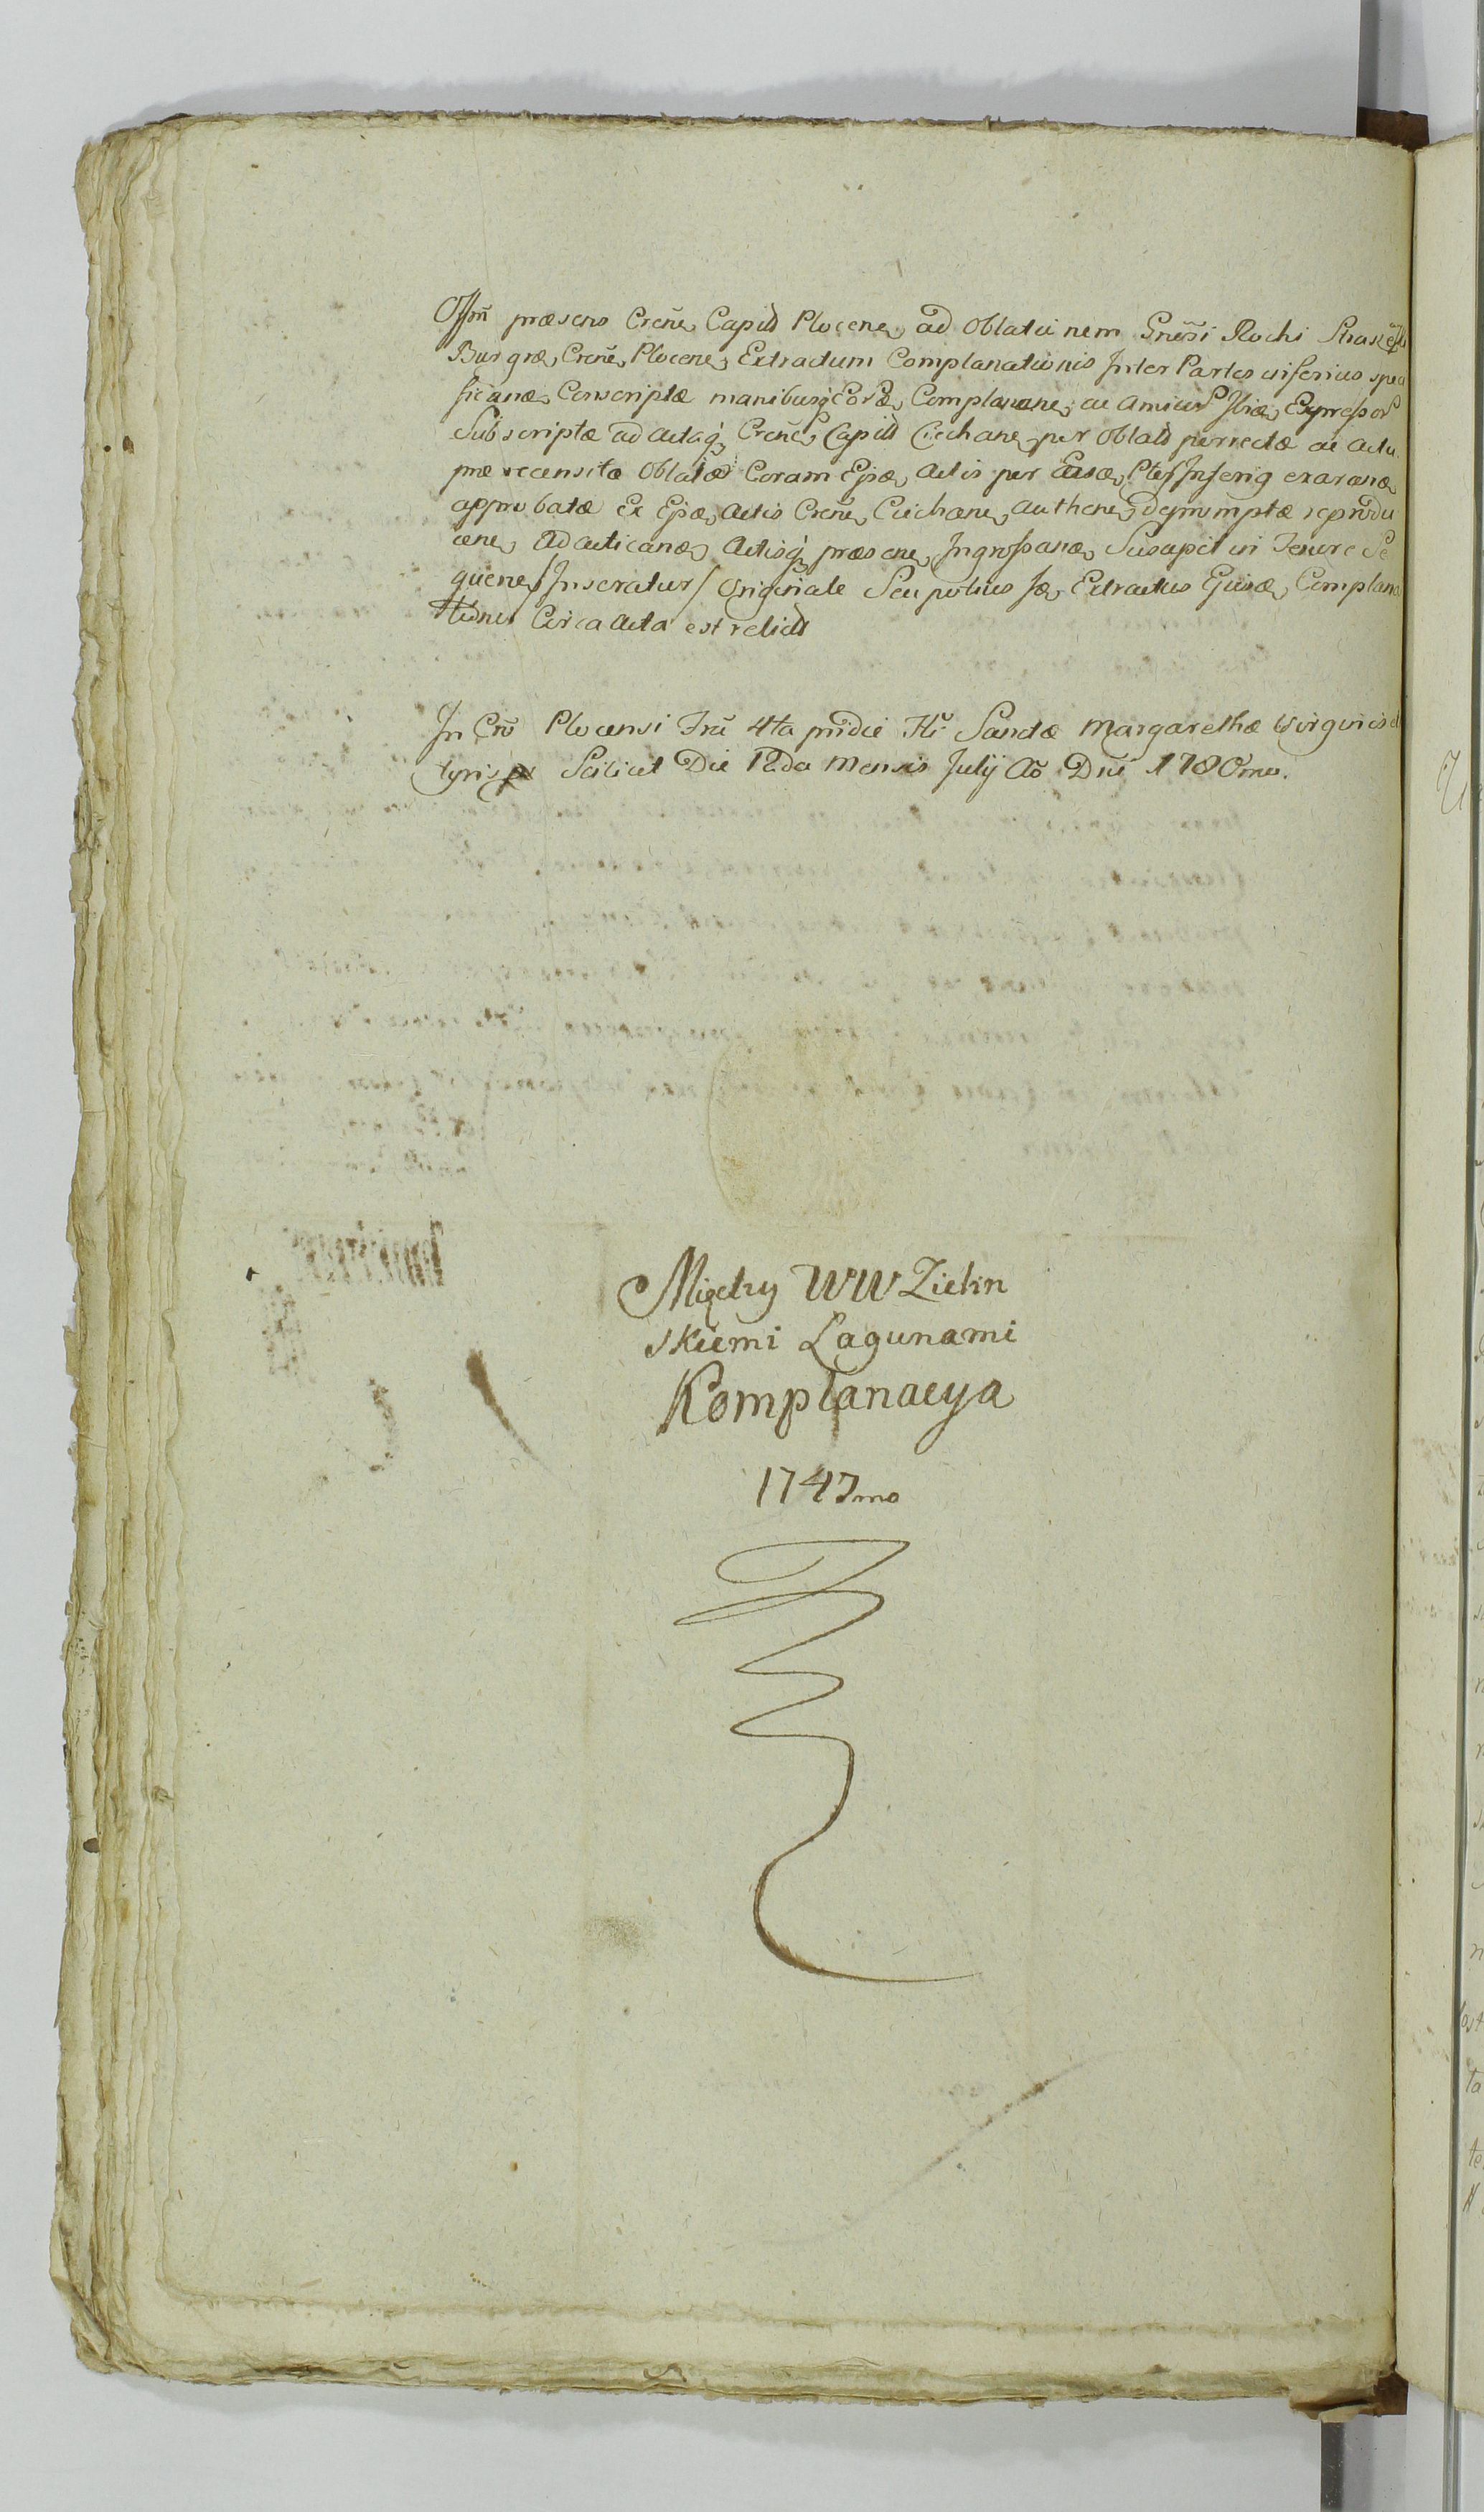 Offm præsens Crene Capitt Plocene ad Oblatiinem Gnesi Rochi
Burgræ Crene Plocene Extractum Complanationis Inter Partes inferius speci
ficanæ Conscriptæ manibusq Complanane ac Amicor Expressor
Subscriptæ ad actaq Crene Capitt Ciechane per Oblatt porrectæ ac actu
præ recensitæ Oblatæ Coram Ejsæ Actis per Inserig exaranæ
approbatæ Ex Ejsæ Actis Crene Ciechane authene depromptæ reprodu
cene Ad acticanæ Actisq præsene Ingrossanæ Suscepit in Tenore Se
quene /Inseratur/ Originale Seu potius Extractus Ejusæ Complana
tionis Circa Acta est relictt
In Cro Plocensi Fra 4ta pridie Fti Sanctæ Margarethæ Virginis et
tyris Scilicet Die 12da Mensis Julij Ao Dni 1780mo.
Między WW Zielin
skiemi Lagunami
Komplanacya
1747mo